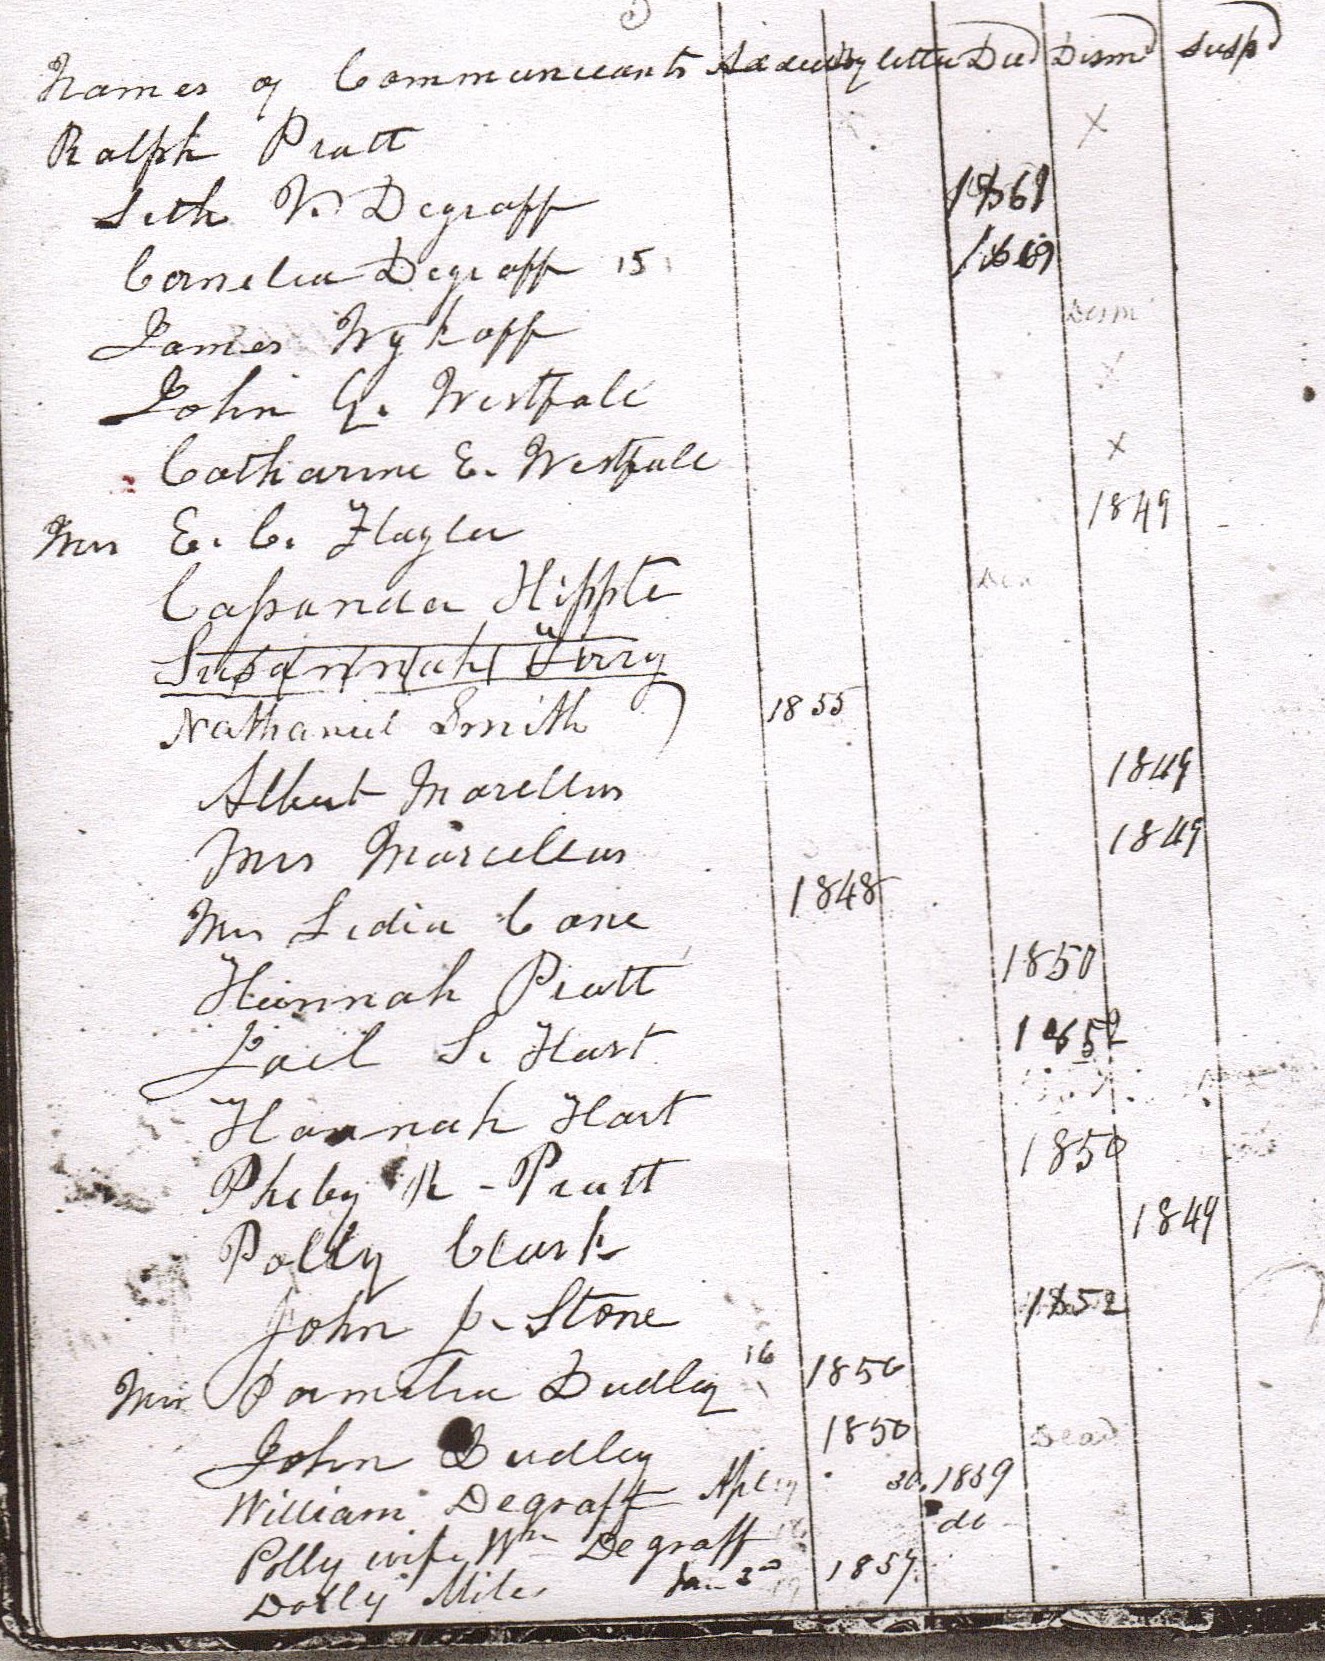 Names of Communicants Added By letter Died Dismd Suspd
Ralph Pratt X
Seth V. Degraff 1861
Cornelia Degraff 15 1869
James Wykoff Dism
John G. Westfall X
Catharine E. Westfall X
Mrs E. C. Flagler 1849
Casſanda Hipple
Susannah Terry
Nathaniel Smith 1855
Albert Marcellus 1849
Mrs Marcellus 1849
Mrs Lidia Cane 1848
Hannah Pratt 1850
Joel S. Hart 1852
Hannah Hart
Pheby R - Pratt 1850
Polly Clark 1849
John P. Stone 1852
Mrs Pamelia Dudley 16 1850
John Dudley 1850 Dead
William Degraff 30, 1859
Polly wife Wm Degraff do
Dolly Miles Jan 1857